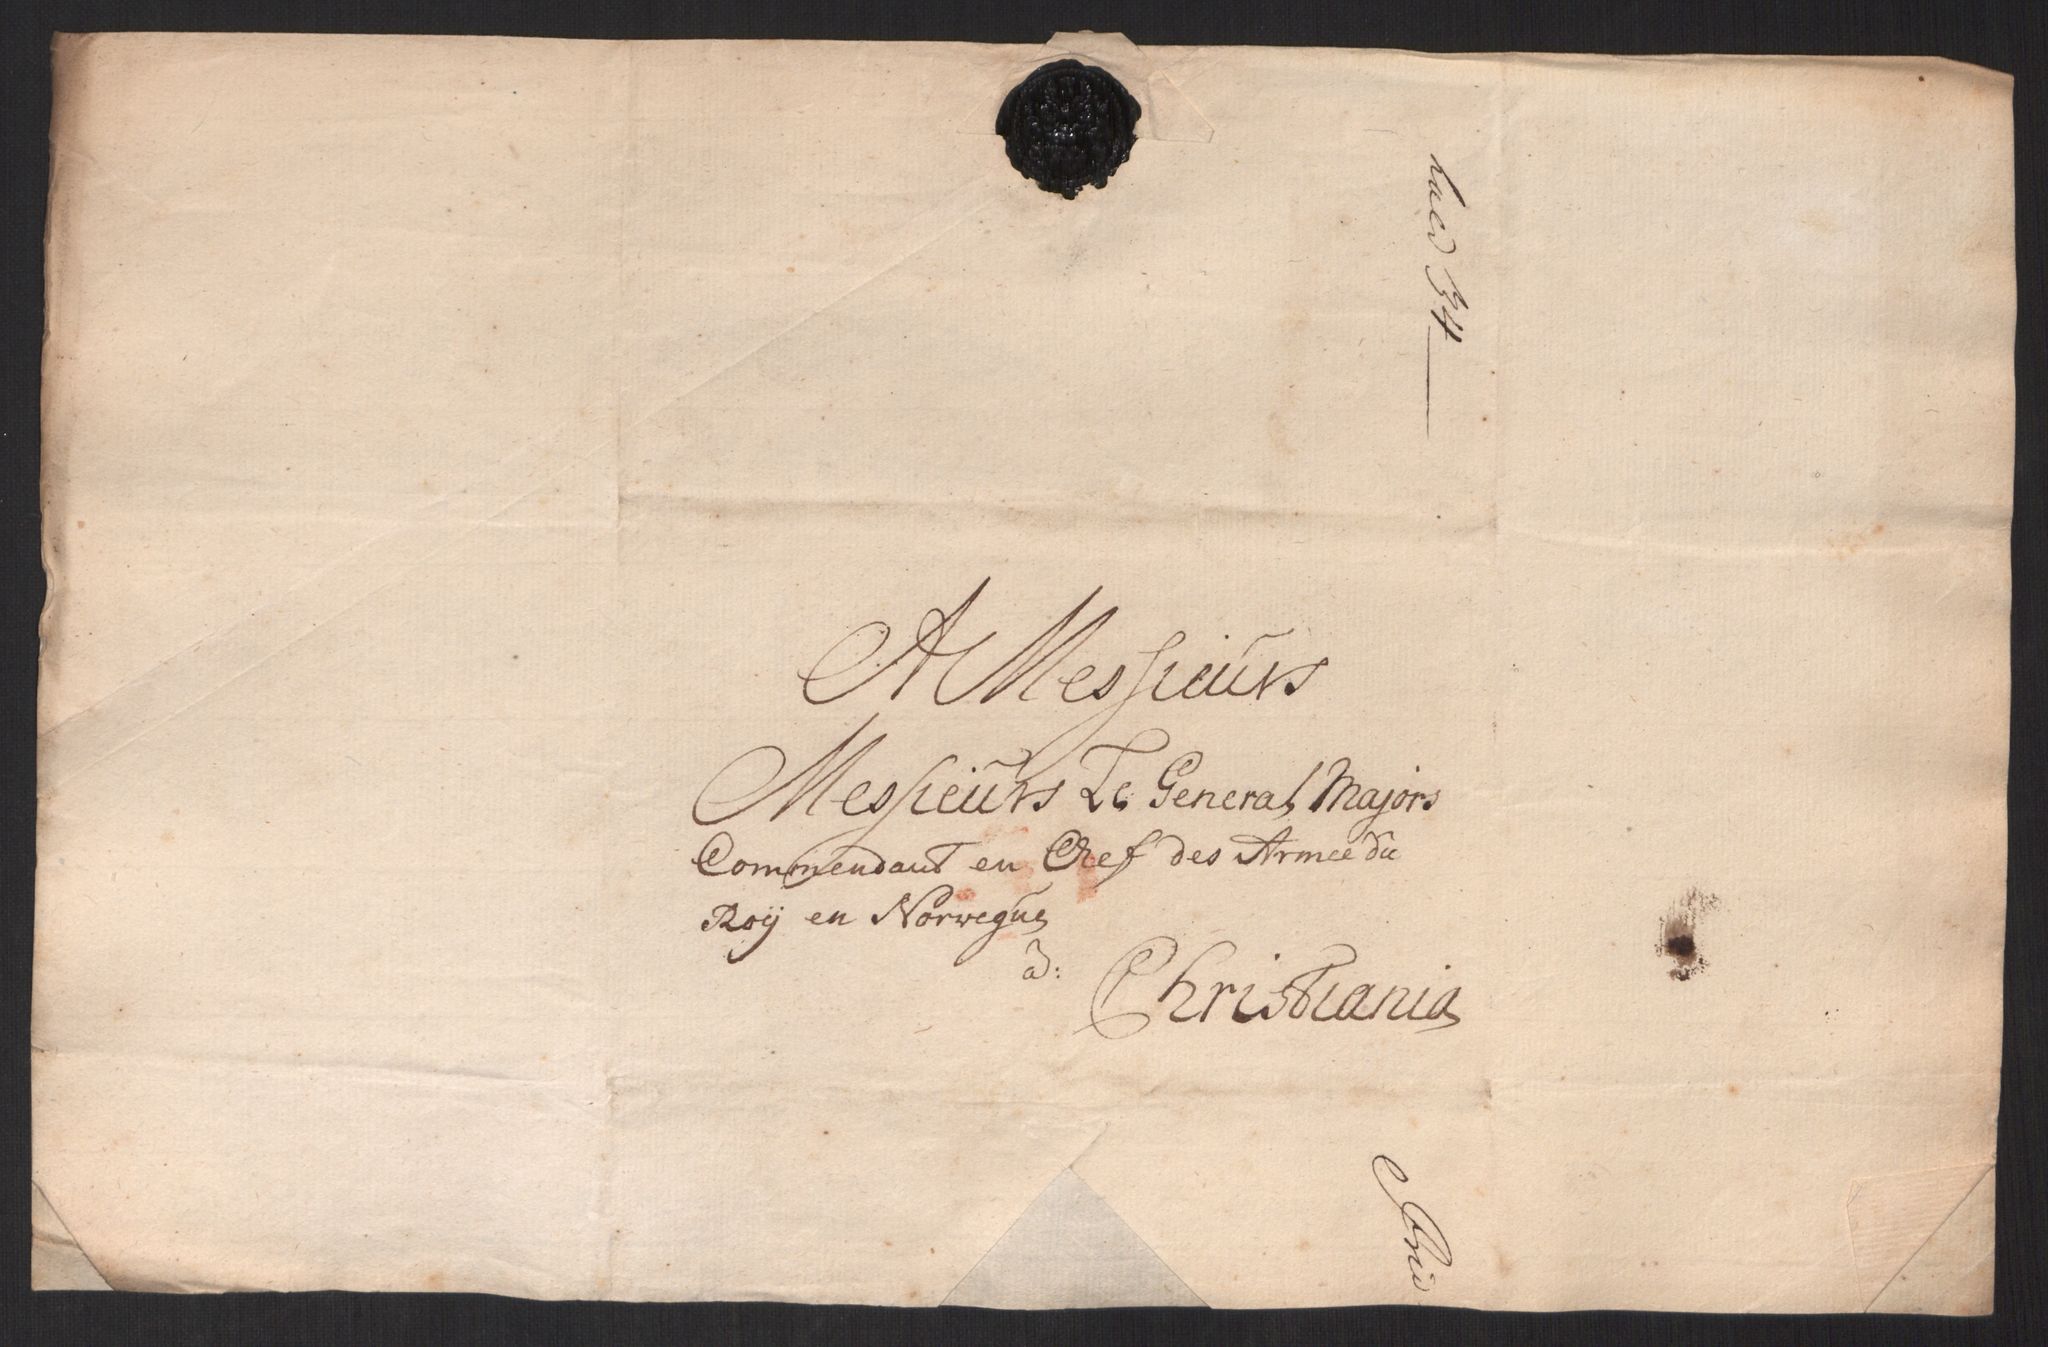 A Messieurs
Messieurs Le General Majors
Commendant en Chef des Armee du
Roÿ en Norwegue
a:
Christiania
34